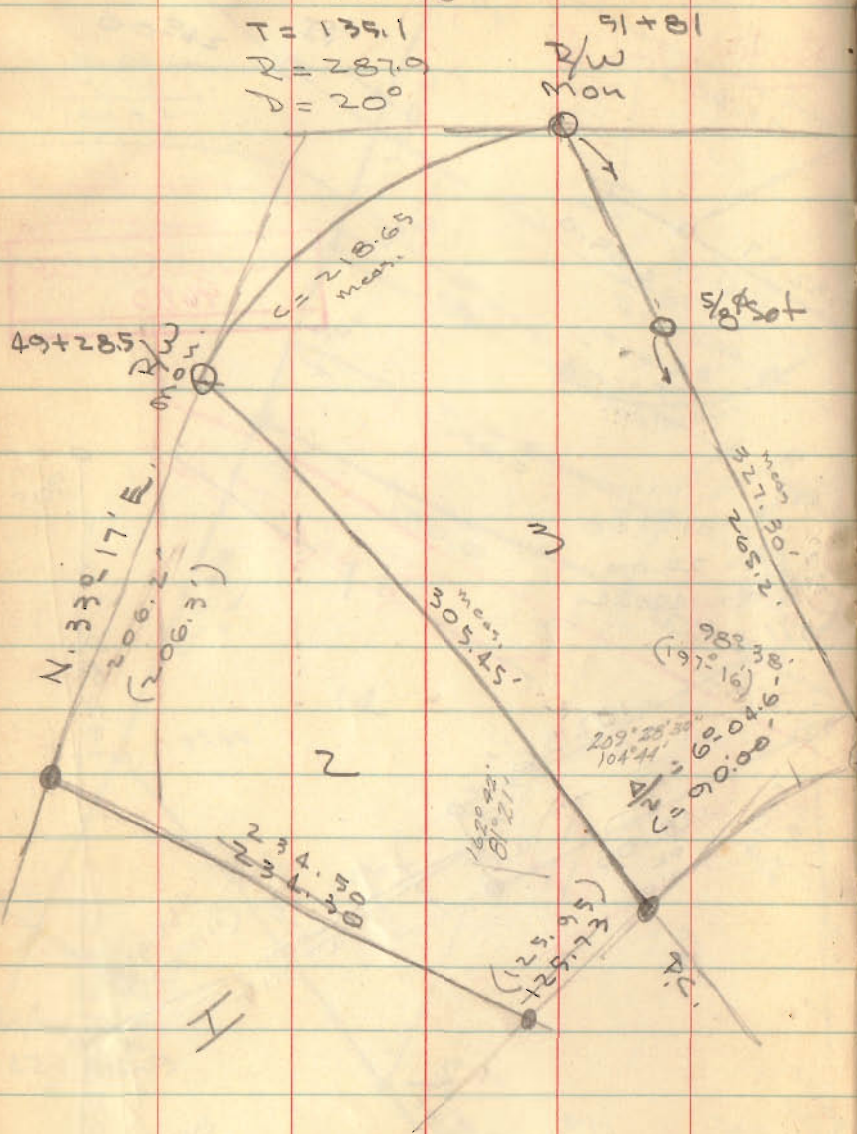 T = 135.1
R = 287.9
D = 20°
51+81
R/W
Mon
c = 218.65
meas.
5/8"φ Set
49+28.5
R/W
Mon.
N. 33°-17' E.
206.2'
(206.3')
meas.
327.30'
265.2'
3
meas.
305.45'
98° 38'
(197°-16')
209° 28' 30"
104° 44'
Δ/2 = 6°-04.6'
c = 90.00'
2
162° 42'
81° 21'
234.30
234.30
(125.95)
125.73
P.C.
1